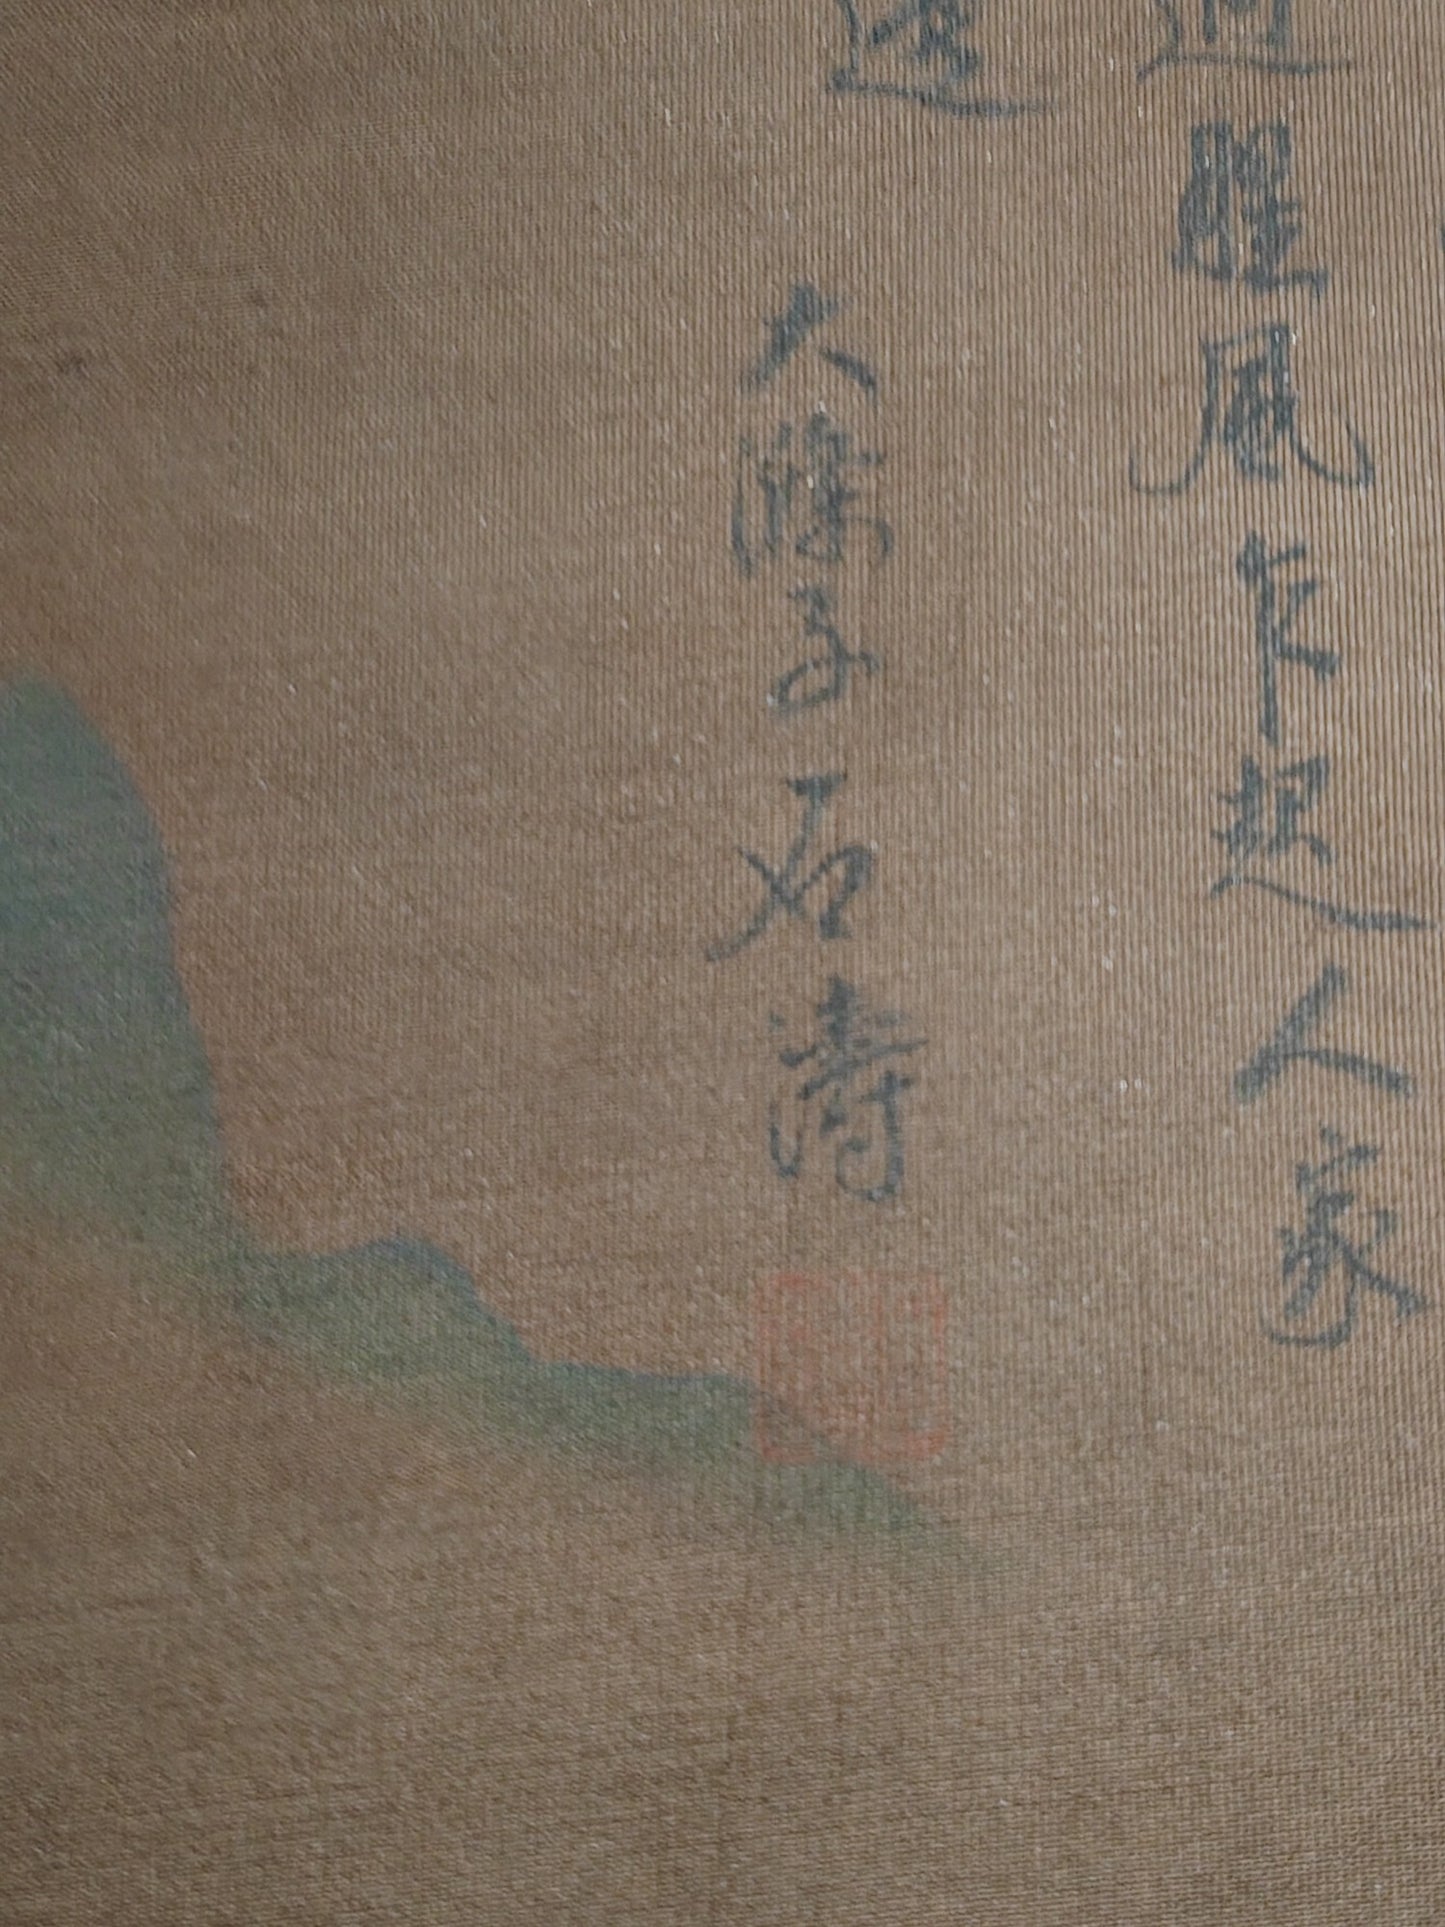 腥風乍起人家
大滌子石濤